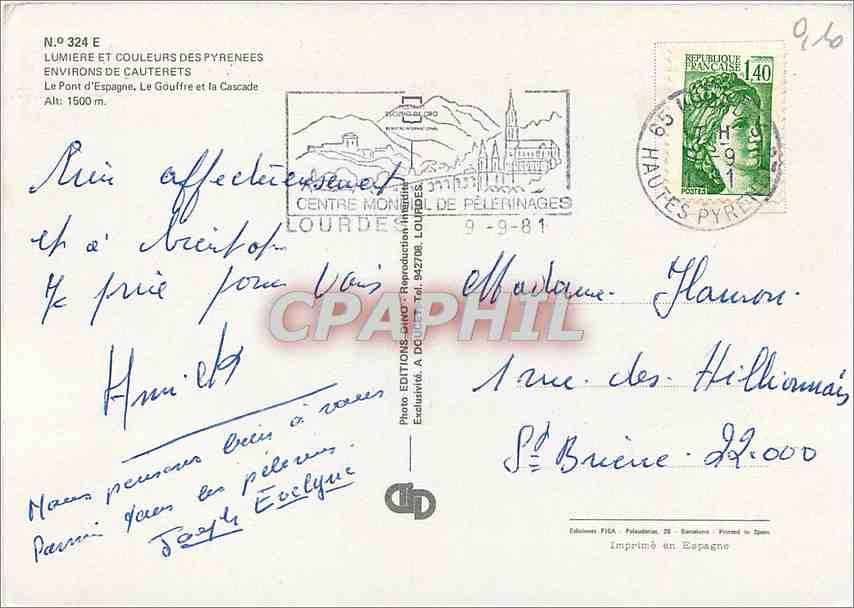 N.º 324 E
LUMIERE ET COULEURS DES PYRENEES
ENVIRONS DE CAUTERETS
Le Pont d'Espagne, Le Gouffre et la Cascade
Alt: 1500 m.
0,80
REPUBLIQUE
FRANÇAISE 1,40
POSTES
65 LOURDES
H
9-9
81
HAUTES PYRENEES
CENTRE MONDIAL DE PÈLERINAGES
LOURDES 9 -9-81
affectueusement
et à bientôt
Je prie pour vous
Nous pensons bien à vous
Parmi tous les pèlerins.
Joseph Evelyne
Photo EDITIONS DINO - Reproduction interdite
Exclusivité. A DOUCET. Tel. 942708. LOURDES.
Madame Hamon.
1 rue des Hillionnais
St Brieuc 22.000
CPAPHIL
Ediciones FISA - Palaudarias, 26 - Barcelona - Printed in Spain
Imprimé en Espagne